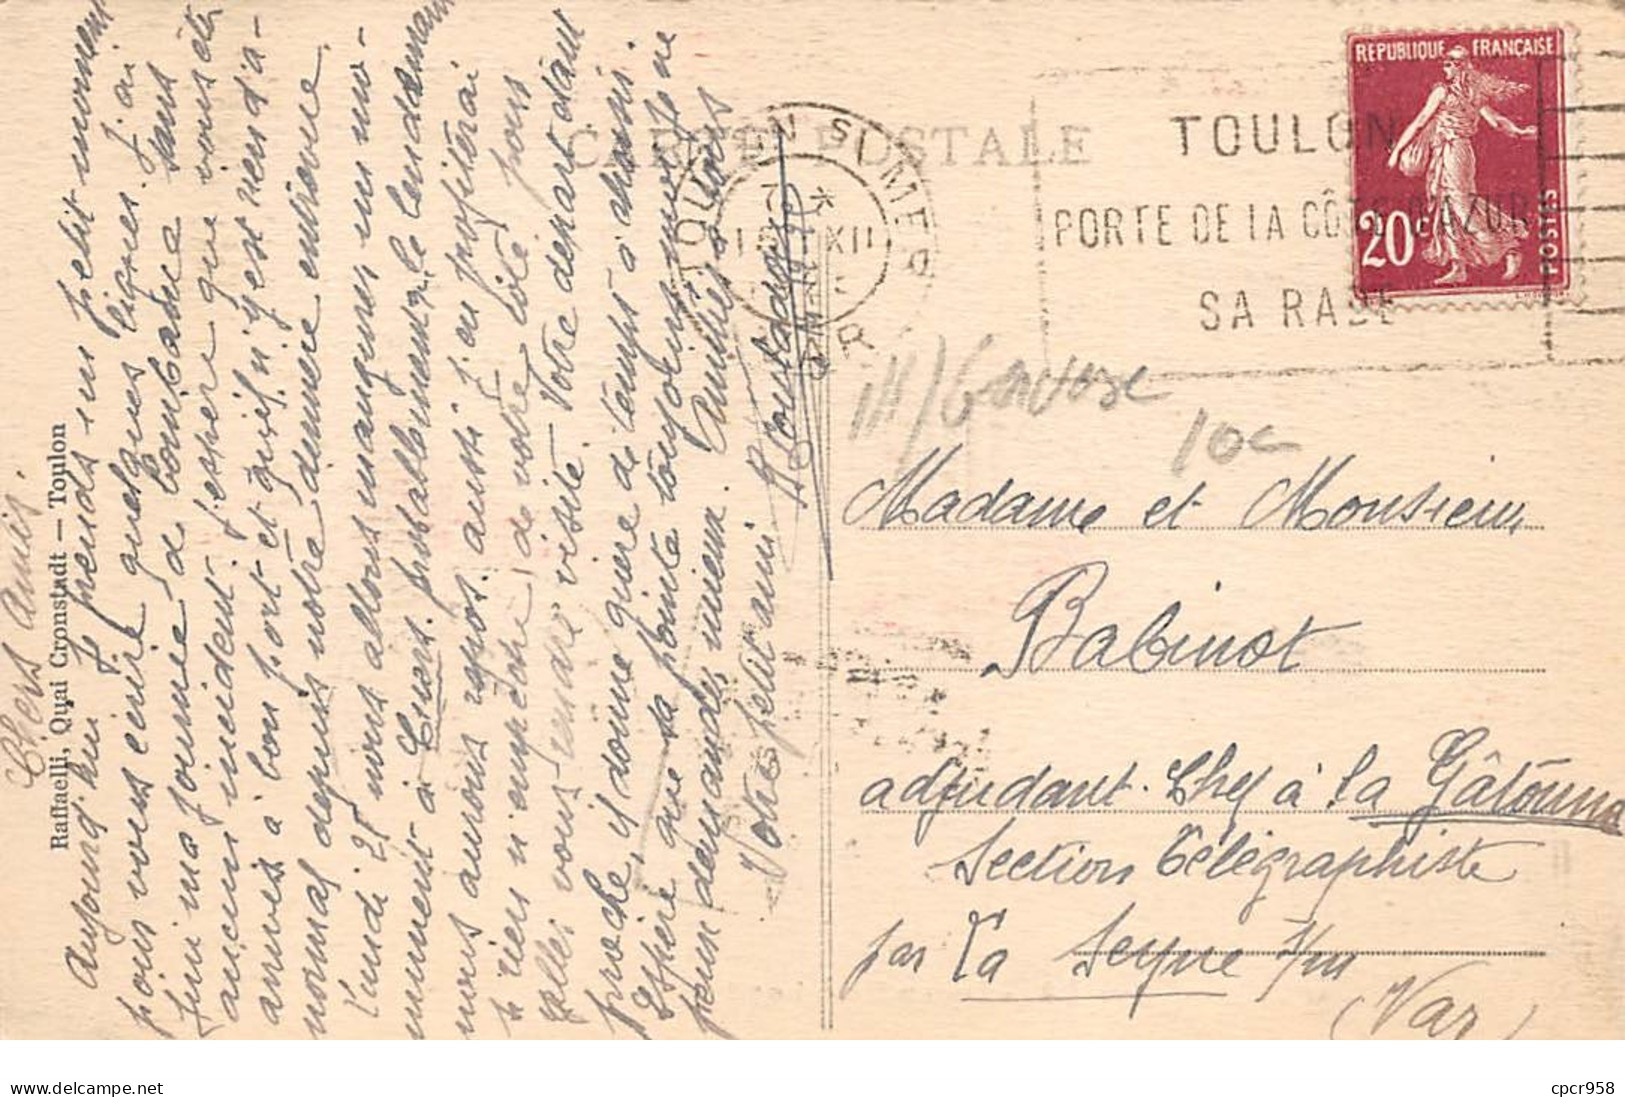 Chers Amis.
Aujourd'hui je prends un petit moment
pour vous écrire quelques lignes. J'ai
fini ma journée de bombance sans
aucun incident. J'espère que vous êtes
arrivés à bon port et qu'il n'y est rien d'a-
normal depuis notre dernière entrevue.
Lundi 28 nous allons manquer un mo-
nument à Cuers. probablement le lendemain
nous aurons repos. aussi j'en profiterai
si rien n'empêche de votre côté pour
aller vous rendre visite. Votre départ étant
proche, il donne guère de temps à choisir.
Espère que sa pointe toujours
peux demander mieux. Amitiés à tous
Votre petit ami R Coustadoy
Raffaelli, Quai Cronstadt — Toulon
CARTE POSTALE
TOULON SUR MER
VAR
TOULON
PORTE DE LA CÔTE D'AZUR
SA RADE
REPUBLIQUE FRANÇAISE
20c
POSTES
10c
Madame et Monsieur
Babinot
adjudant-Chef à la Gâtoune
Section Télégraphiste
par La Seyne s/m
(Var)
cpcr958